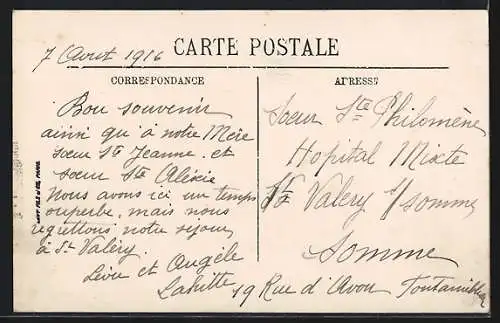 7 Aout 1916
CARTE POSTALE
CORRESPONDANCE
ADRESSE
Bon souvenir
ainsi qu'à notre Mère
sœur Ste Jeanne. et
sœur Ste Alexie
Nous avons ici un temps
superbe, mais nous
regrettons notre séjour
à St Valéry.
et Angèle
Lafitte
19 Rue d'Avon Fontainebleau
Soeur Ste Philomène
Hopital Mixte
St Valery s/somme
Somme